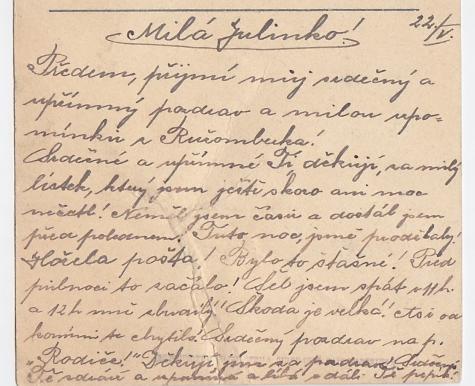 22/V.
Milá Julinko!
Předem, přijmi můj srdečný a
upřímný pozdrav a milou upo-
mínku z Ružomberka!
Srdečné a upřímné Ti děkuji, za milý
lístek, který jsem ještě skoro ani moc
nečetl! Neměl jsem času a dostal jsem
před polednem. Tuto noc, jsmě prodělaly!
Hořela pošta! Bylo to šťasné! Před
půlnoci to začalo! Šel jsem spát v 11h.
a 12h mně Škoda je velká! Asi od
komínu to chytilo. Srdečný pozdrav na p.
Rodiče!" Děkuji jim za pozdrav! Srdečně
Tě zdraví a vzpomíná a líbá z dáli Tě